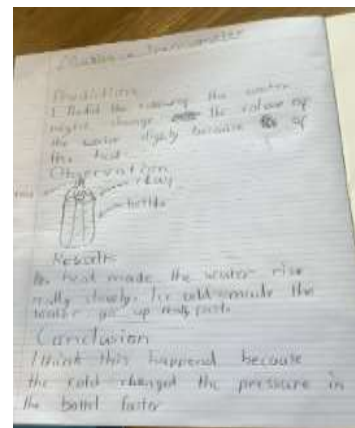 Thermometer
Prediction
I Predict the the water
might change the colour of
the water because of
the heat.
Observation
clay
bottle
Results
the heat made the water rise
really slowly. The cold made the
water go up really fast.
Conclusion
I think this happend because
the cold changed the pressure in
the bottel faster